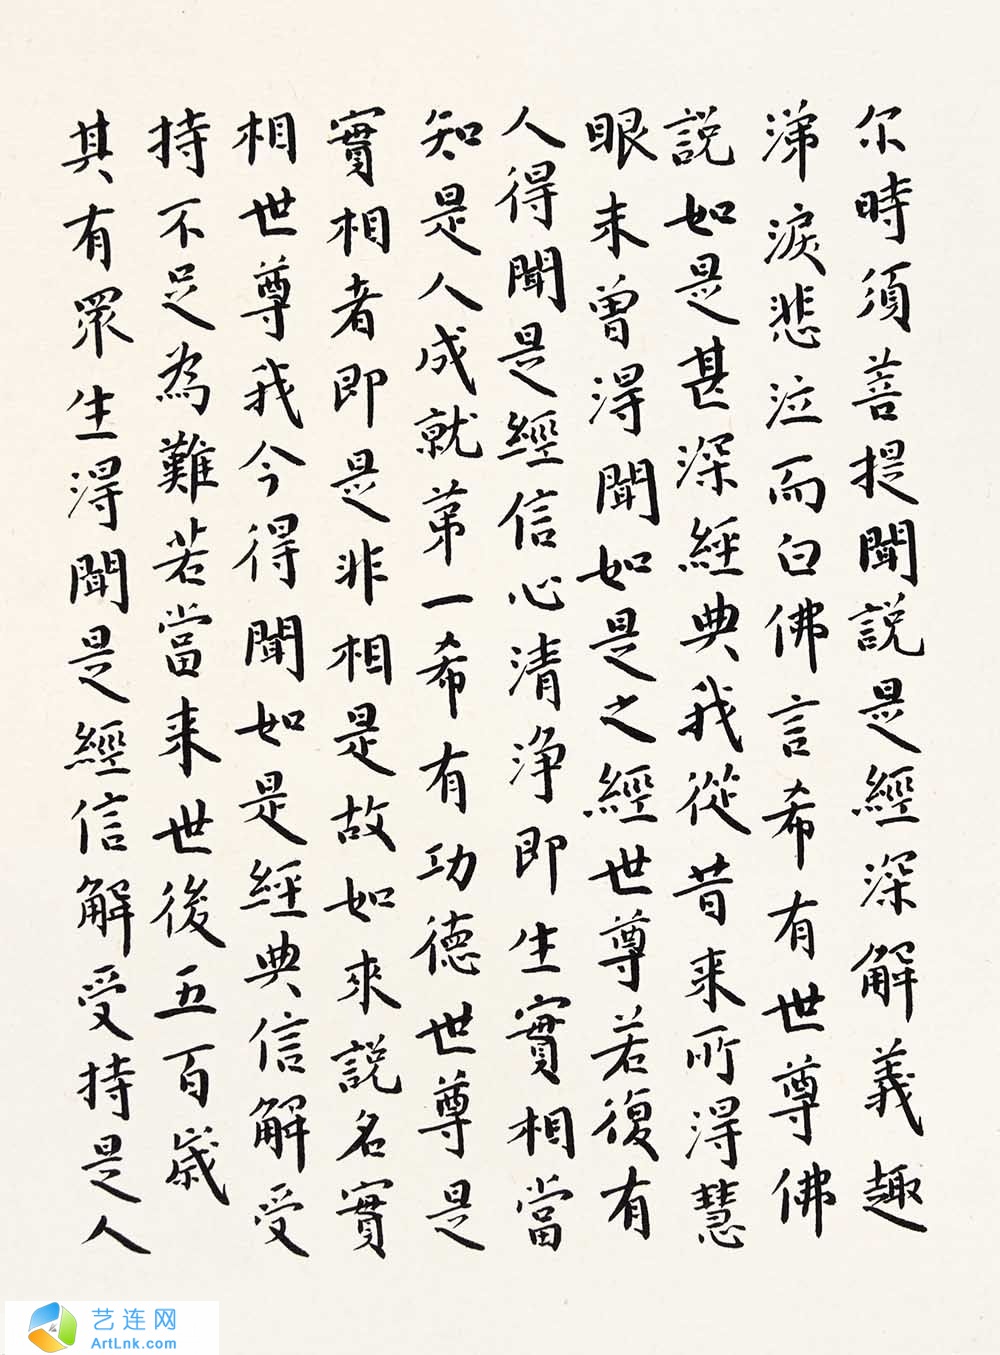 尔時須菩提聞説是經深解義趣
涕淚悲泣而白佛言希有世尊佛
説如是甚深經典我從昔来所得慧
眼未曾得聞如是之經世尊若復有
人得聞是經信心清浄即生實相當
知是人成就第一希有功德世尊是
實相者即是非相是故如來説名實
相世尊我今得聞如是經典信解受
持不足為難若當来世後五百歲
其有眾生得聞是經信解受持是人
艺连网
ArtLnk.com